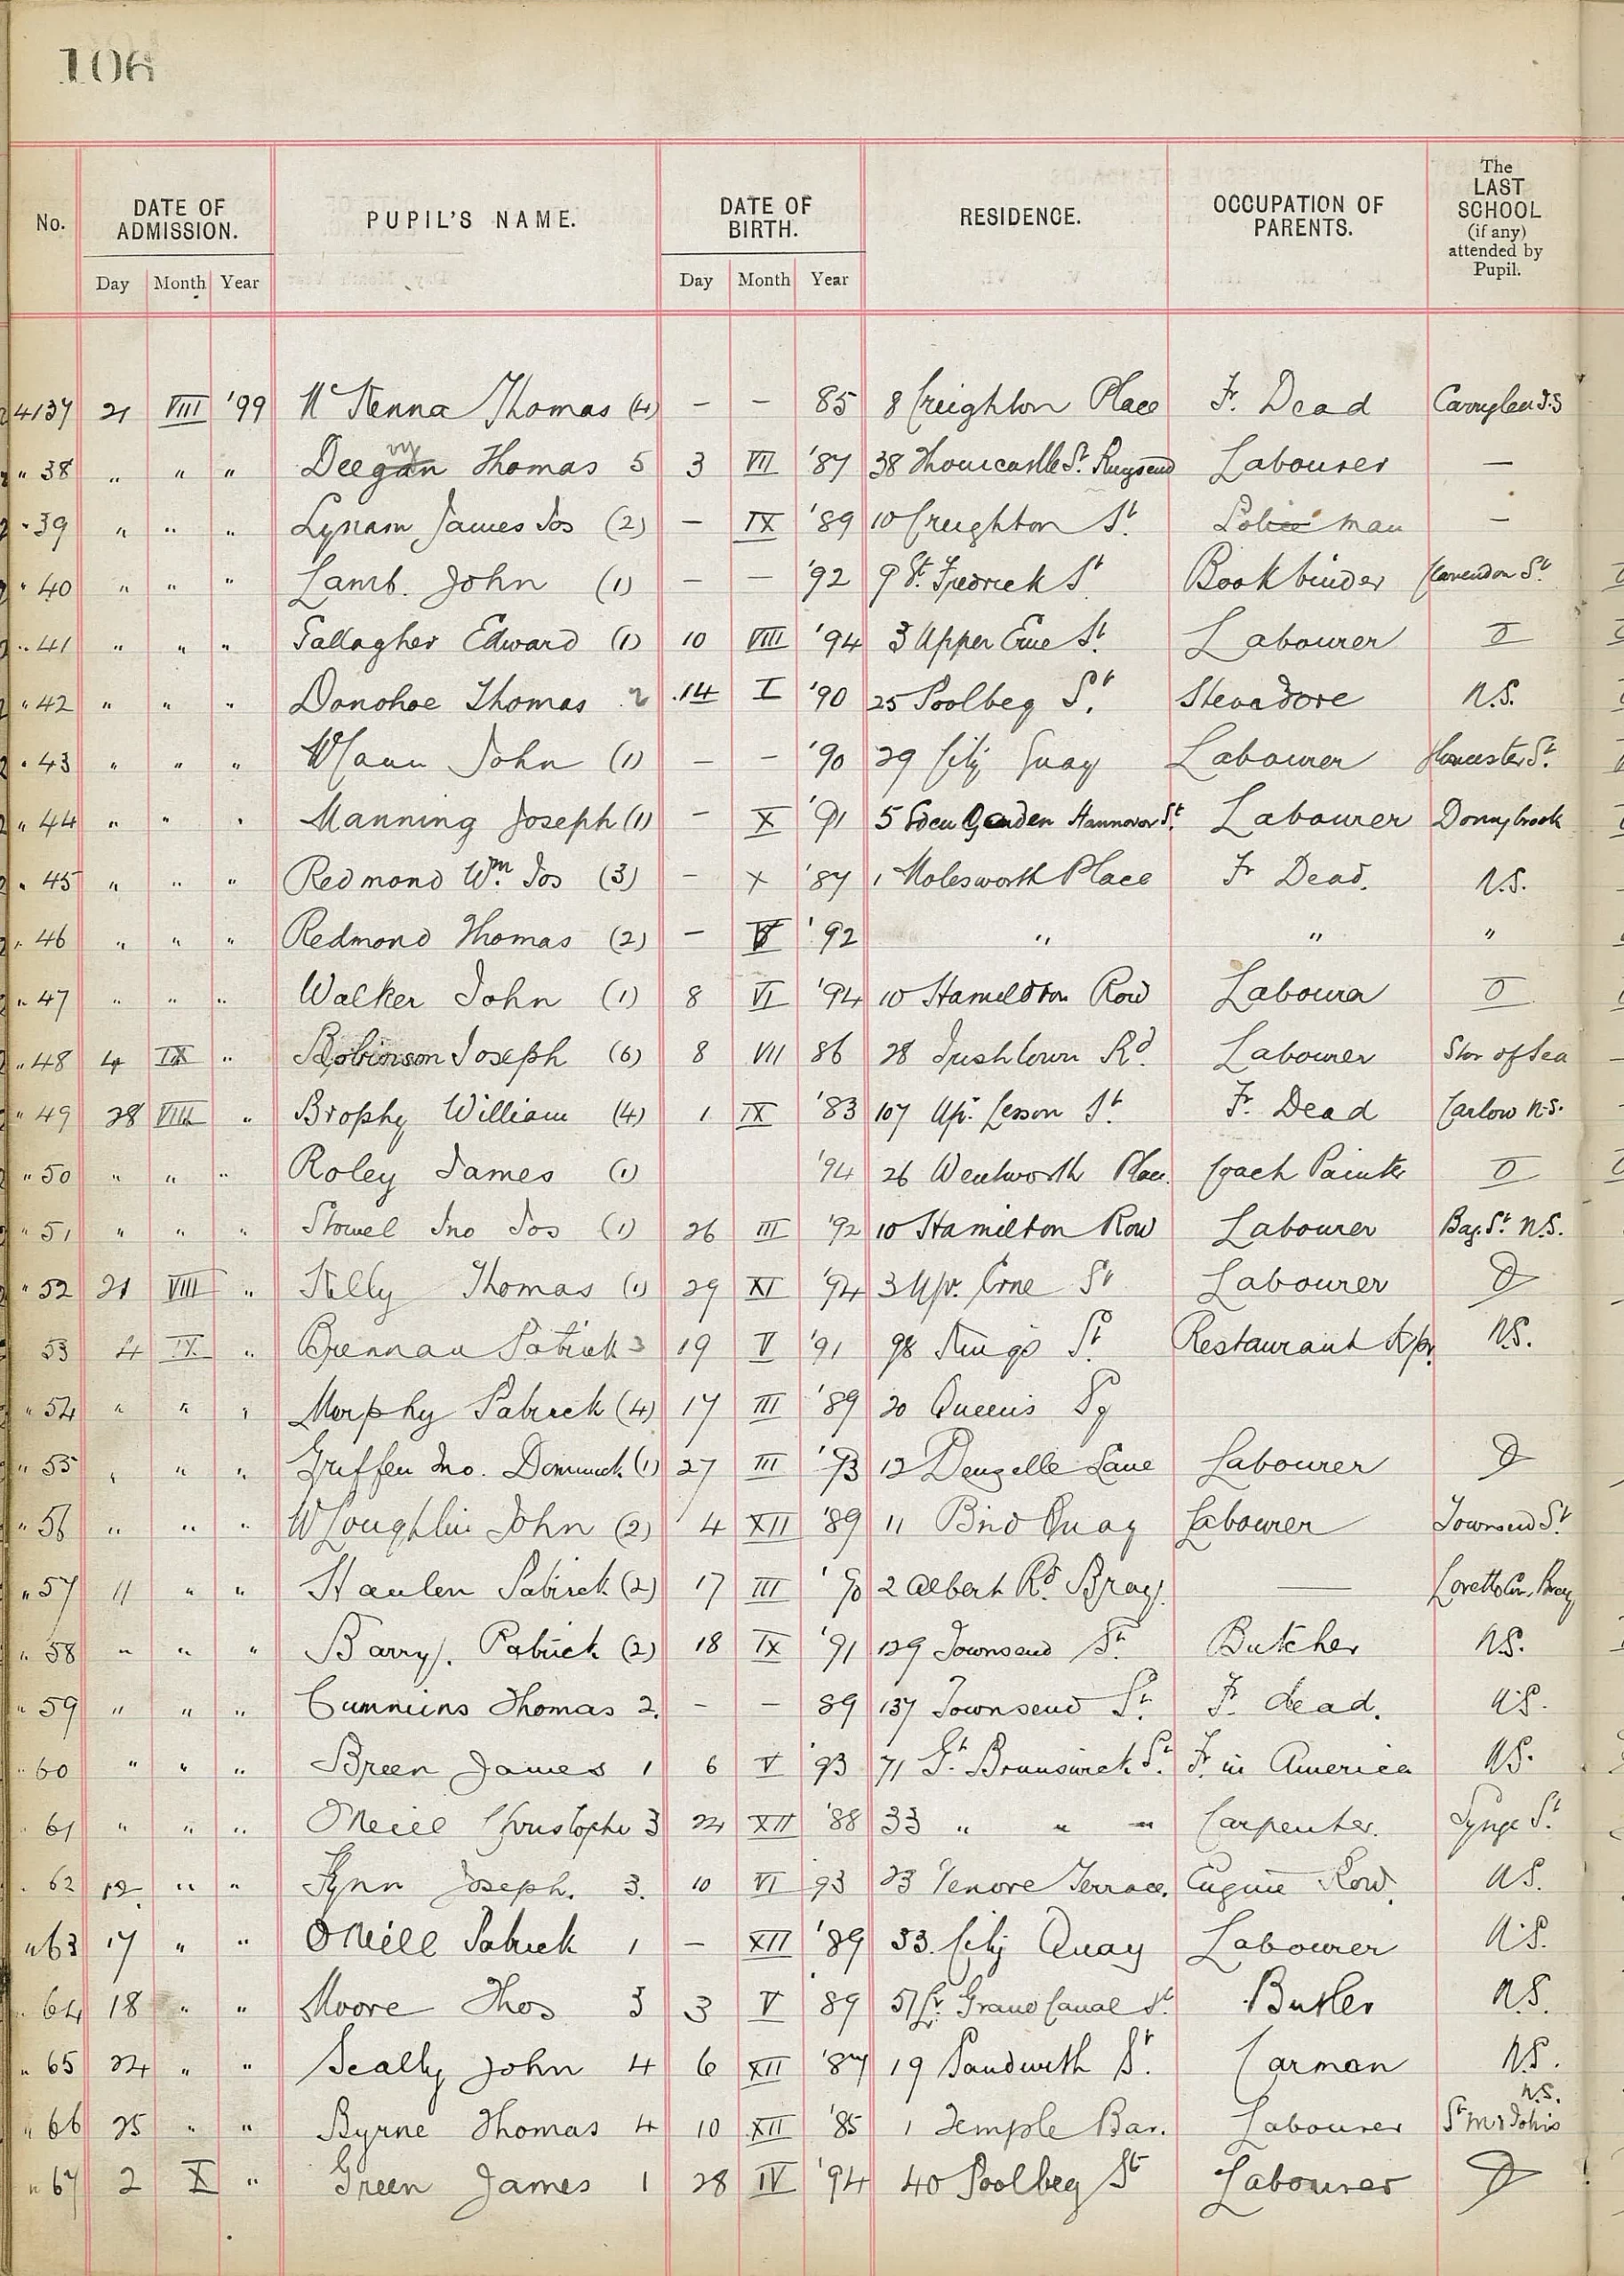 106
No. DATE OF ADMISSION. PUPIL'S NAME. DATE OF BIRTH. RESIDENCE. OCCUPATION OF PARENTS. The LAST SCHOOL (if any) attended by Pupil.
Day Month Year Day Month Year
4137 21 VIII '99 McKenna Thomas (4) – – 85 8 Creighton Place Fr. Dead
" 38 " " " Deegan vy Thomas 5 3 VII '87 38 Thorncastle St. Ringsend Labourer —
" 39 " " " Lynam James Jos (2) – IX '89 10 Creighton St. Police man –
" 40 " " " Lamb. John (1) – – '92 9 St. Fredrick St. Bookbinder Clarendon St.
" 41 " " " Gallagher Edward (1) 10 VIII '94 3 Upper Erne St. Labourer O
" 42 " " " Donohoe Thomas 2 14 I '90 25 Poolbeg St. Stevadore N.S.
" 43 " " " McCann John (1) – – '90 29 City Quay Labourer Gloucester St.
" 44 " " " Manning Joseph (1) – X '91 5 Eden Garden Hannover St. Labourer Donnybrook
" 45 " " " Redmond Wm. Jos (3) – X '87 1 Molesworth Place Fr Dead. N.S.
" 46 " " " Redmond Thomas (2) – V '92 " " "
" 47 " " " Walker John (1) 8 VI '94 10 Hamildton Row Labourer O
" 48 4 IX " Robinson Joseph (6) 8 VII 86 28 Irishtown Rd. Labourer Star of Sea
" 49 28 VIII " Brophy William (4) 1 IX '83 107 Upr. Leeson St. Fr. Dead Carlow N.S.
" 50 " " " Roley James (1) '94 26 Wentworth Place. Coach Painter O
" 51 " " " Stowel Jno Jos (1) 26 III '92 10 Hamilton Row Labourer Bag. St. N.S.
" 52 21 VIII " Kelly Thomas (1) 29 XI '94 3 Upr. Erne St Labourer O
53 4 IX " Brennan Patrick 3 19 V '91 98 Kings St. Restaurant Kpr. N.S.
" 54 " " " Murphy Patrick (4) 17 III '89 20 Queens Sq
" 55 " " " Griffen Jno. Dominick (1) 27 III '93 12 Denzelle Lane Labourer O
" 56 " " " McLoughlin John (2) 4 XII '89 11 Bird Quay Labourer Townsend St.
" 57 11 " " Hanlen Patrick (2) 17 III '90 2 Albert Rd. Bray. — Loretto Con. Bray
" 58 " " " Barry. Patrick (2) 18 IX '91 129 Townsend St. Butcher N.S.
" 59 " " " Cummins Thomas 2. – – 89 137 Townsend St. Fr. dead. N.S.
" 60 " " " Breen James 1 6 V '93 71 Gt. Brunswick St. Fr. in America N.S.
61 " " " ONeill Christopher 3 24 XII '88 33 " " " Carpenter. Synge St.
62 12 " " Flynn Joseph. 3. 10 VI 93 Terrace. Engine N.S.
" 63 17 " " ONeill Patrick 1 – XII '89 33. City Quay Labourer N.S.
64 18 " " Moore Thos 3 3 V '89 51 Lr. Grand Canal St. Butler N.S.
" 65 24 " " Scally John 4 6 XII '87 19 Sandwith St. Carman N.S.
" 66 25 " " Byrne Thomas 4 10 XII '85 1 Temple Bar. Labourer N.S.
" 67 2 X " Green James 1 28 IV '94 40 Poolbeg St Labourer O